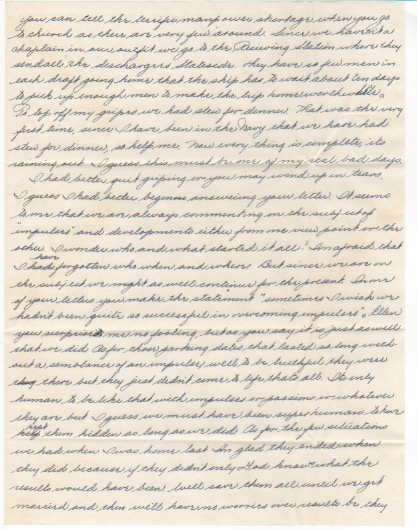 you can tell the terrific manpower shortage when you go
to church as there are very few around. Since we haven't a
chaplain in our outfit we go to the Receiving Station where they
send all the dischargees Stateside. They have so few men in
each draft going home that the ship has to wait about ten days
to pick up enough men to make the trip home worthwhile.
To top off my gripes we had stew for dinner. That was the very
first time, since I have been in the Navy that we have had
stew for dinner, so help me. Now every thing is complete, its
raining out. I guess this must be one of my real bad days.
I had better quit griping or you may wind up in tears.
I guess I had better begin answering your letter. It seems
to me that we are always commenting on the subject of
"impulses" and developments either from one view point or the
other. I wonder who, and what started it all? I'm afraid that
I have forgotten who, when and where. But since we are on
the subject we might as well continue for the present. In one
of your letters you make the statement "sometimes I wish we
hadn't been quite so successful in overcoming impulses". Ellen
you surprise me no fooling, but as you say it is just as well
that we did. As for those parking dates that lasted so long with-
out a semblance of an impulse, well to be truthful they were
there but they just didn't come to life thats all. Its only
human to be like that with impulses or passions or whatever
they are, but I guess we must have been super human to have
kept them hidden as long as we did. As for the few situations
we had when I was home last I'm glad they ended when
they did because if they didn't only God knows what the
results would have been. We'll save them all until we get
married and then we'll have no worries over results be they